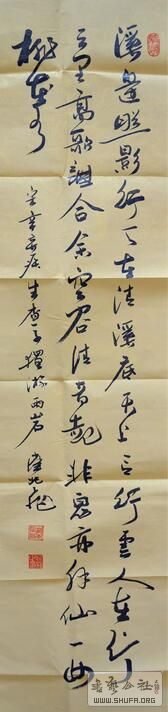 溪邊照影行天在清溪底天上有行雲人在行
云里高歌誰合余空谷清音起非鬼亦非仙一曲
桃花水
宋辛棄疾生查子獨游雨岩
書藝公社
WWW.SHUFA.ORG